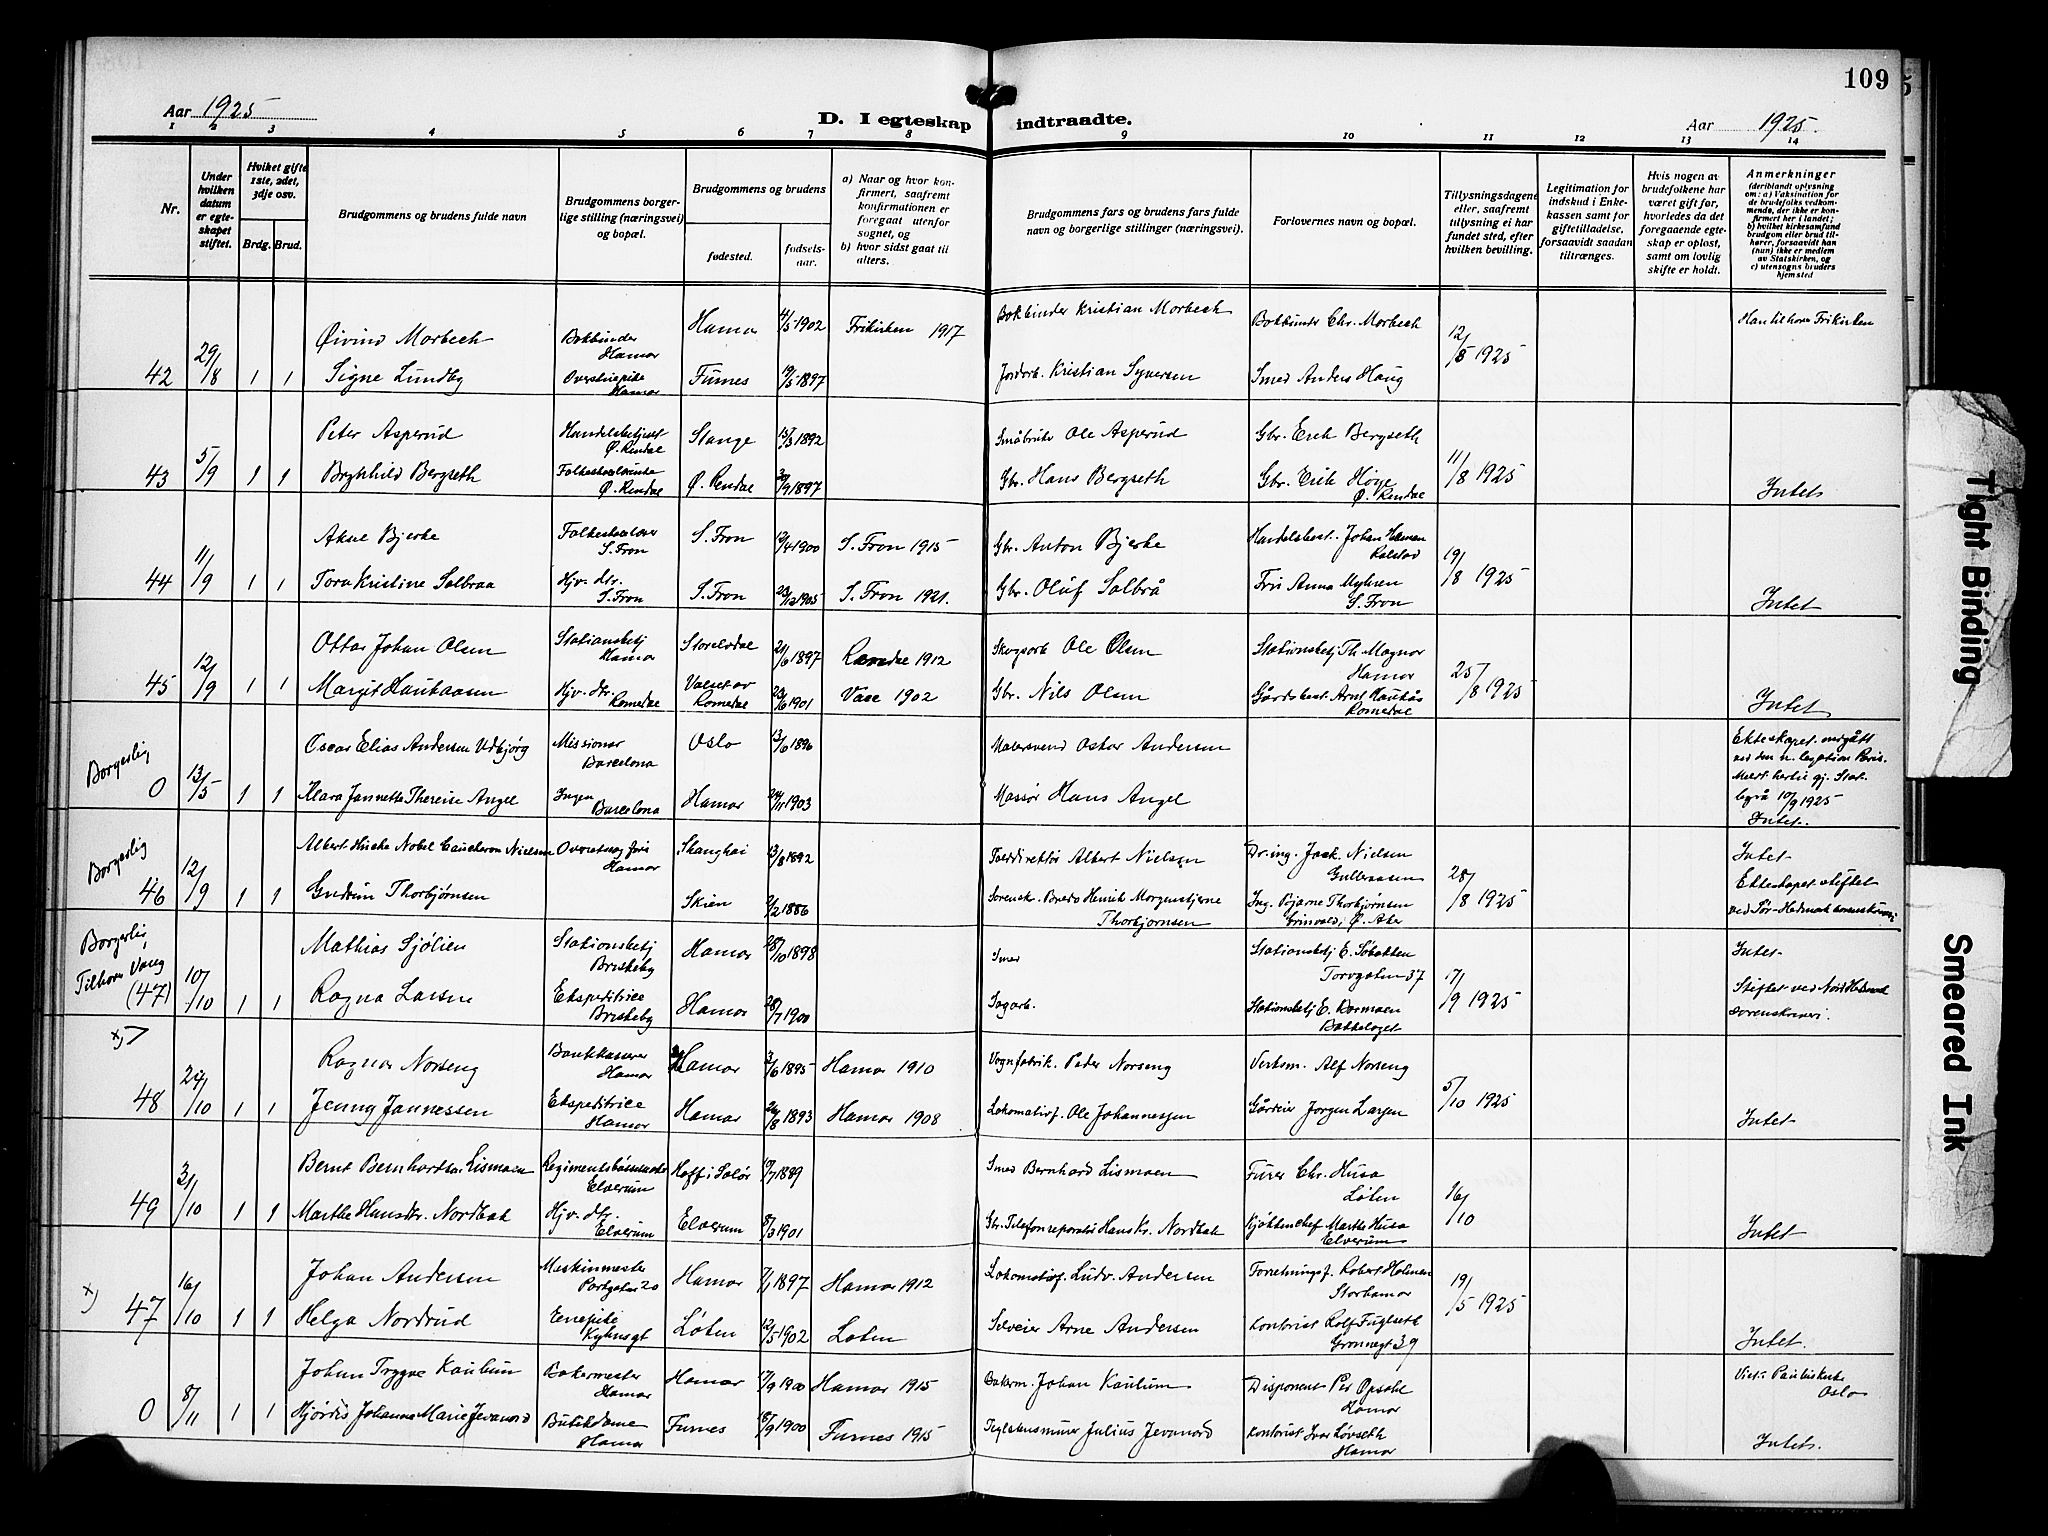 109
Aar 1925
D. I egteskap indtraadte.
Aar 1925.
1 2 3 4 5 6 7 8 9 10 11 12 13 14
Nr.
Under hvilken datum er egteskapet stiftet.
Hvilket gifte 1ste, 2det, 3dje osv.
Brdg. Brud.
Brudgommens og brudens fulde navn
Brudgommens borgerlige stilling (næringsvei) og bopæl.
Brudgommens og brudens
fødested.
fødselsaar.
a) Naar og hvor konfirmert, saafremt konfirmationen er foregaat utenfor sognet, og
b) hvor sidst gaat til alters.
Brudgommens fars og brudens fars fulde navn og borgerlige stillinger (næringsvei).
Forlovernes navn og bopæl.
Tillysningsdagene eller, saafremt tillysning ei har fundet sted, efter hvilken bevilling.
Legitimation for indskud i Enkekassen samt for giftetilladelse, forsaavidt saadan tiltrænges.
Hvis nogen av brudefolkene har været gift før, hvorledes da det foregaaende egteskap er opløst, samt om lovlig skifte er holdt.
Anmerkninger (deriblandt oplysning om: a) Vaksination for de brudefolks vedkommende, der ikke er konfirmert her i landet; b) hvilket kirkesamfund brudgom eller brud tilhører, forsaavidt han (hun) ikke er medlem av Statskirken, og c) utensogns bruders hjemsted
42 29/8 1 1
Øivind Morbech Bokbinder Hamar Hamar 4/5 1902 Frikirken 1917 Bokbinder Kristian Morbech Bokbinder Chr. Morbech 12/8 1925 Han tilhører Frikirken
Signe Lundby Hamar Furnes 19/5 1897 Jordarb. Kristian Syversen Smed Anders Haug
43 5/9 1 1
Peter Asperud Handelsbetjent Ø. Rendal Stange 15/3 1892 Småbruker Ole Asperud Gbr. Erik Bergseth 11/8 1925
Brynhild Bergseth Ø. Rendal Ø. Rendal 1897 Gbr. Hans Bergseth Gbr. Erik Høye Ø. Rendal Intet
44 11/9 1 1
Bjerke Folkeskolelærer S. Fron S. Fron 1900 S. Fron 1915 Gbr. Anton Bjerke Handelsbest. Johan 19/8 1925
Tora Kristine Solbraa Hjv. dtr. S. Fron S. Fron 1905 S. Fron 1921. Gbr. Oluf Solbrå Fru Anna Myhren S. Fron Intet
45 12/9 1 1
Ottar Johan Olsen Stationsbetj Hamar Storelvdal 21/6 1897 Rendal 1912 Skogsarb Ole Olsen Stationsbetj Th. Magnor Hamar 25/8 1925
Margit Haukaasen Hjv. dtr. Romedal Valset av Romedal 1901 1902 Gbr. Nils Olsen Gårdsbest. Arnt Haukås Romedal Intet
Borgerlig 0 13/5 1 1
Oscar Elias Andersen Udbjørg Missionær Barcelona Oslo 13/6 1896 Malersvend Oskar Andersen Ekteskapet inngått ved den n. legation Paris.
Klara Jannette Therese Angel Ingen Barcelona Hamar 24/11 1903 Massør Hans Angel 10/9 1925 Intet.
Borgerlig 46 12/9 1 1
Albert Nobel Nielsen Hamar Shanghai 13/8 1892 Tolddirektør Albert Nielsen Dr. ing. Jack. Nielsen 28/8 1925 Intet
Gudrun Thorbjørnsen Skien 2/2 1886 Henrik Morgenstjerne Thorbjørnsen Ing. Bjarne Thorbjørnsen Ø. Aker Ekteskapet stiftet ved Sør-Hedmark
Borgerlig, Tilhører Vang (47) 10/10 1 1
Mathias Sjølien Stationsbetj Briskeby Hamar 28/10 1898 Smed Stationsbetj E. Torvgaten 37 17/9 1925 Intet
Ragna Larsne Ekspeditrice Briskeby Hamar 28/7 1900 Sagarb. Stationsbetj E. Bakkelaget Stiftet ved Nord Hedmark sorenskriveri.
x) 48 24/10 1 1
Ragnar Norseng Bankkasserer Hamar Hamar 3/6 1895 Hamar 1910 Vognfabrik. Peder Norseng Verksm. Alf Norseng 5/10 1925
Jenny Jannessen Ekspeditrice Hamar Hamar 1893 Hamar 1908 Lokomotivf. Ole Johannessen Gårdeier Jørgen Larsen Intet
49 31/10 1 1
Bernt Bernhardsen Lismoen Elverum Hoff i Solør 1889 Smed Bernhard Lismoen Furer Chr. Husa Løten 16/10
Marthe Hansdtr. Nordbak Hjv. dtr. Elverum Elverum 8/3 1901 Gbr. Telefonreparatør Hans Kr. Nordbak Kjøkkenchef Marthe Husa Elverum Intet
x) 47 16/10 1 1
Johan Andersen Maskinmester Parkgaten 20 Hamar 7/1 1897 Hamar 1912 Lokomotivf. Ludv. Andersen Forretningsf. Robert Holmen Storhamar 19/5 1925
Helga Nordrud Enepike Løten 12/5 1902 Løten Selveier Arne Andersen Kontorist Rolf Fuglseth Grønnegt 39 Intet.
0 8/11 1 1
Johan Trygve Kaulum Bakermester Hamar Hamar 17/9 1900 Hamar 1915 Bakerm. Johan Kaulum Disponent Per Opsahl Hamar Viet i Pauluskirke Oslo
Hjørdis Johanna Marie Jevanord Butikdame Hamar Furnes 18/9 1900 Furnes 1915 Julius Jevanord Kontorist Ivar Løvseth Hamar Intet.
Tight Binding
Smeared Ink